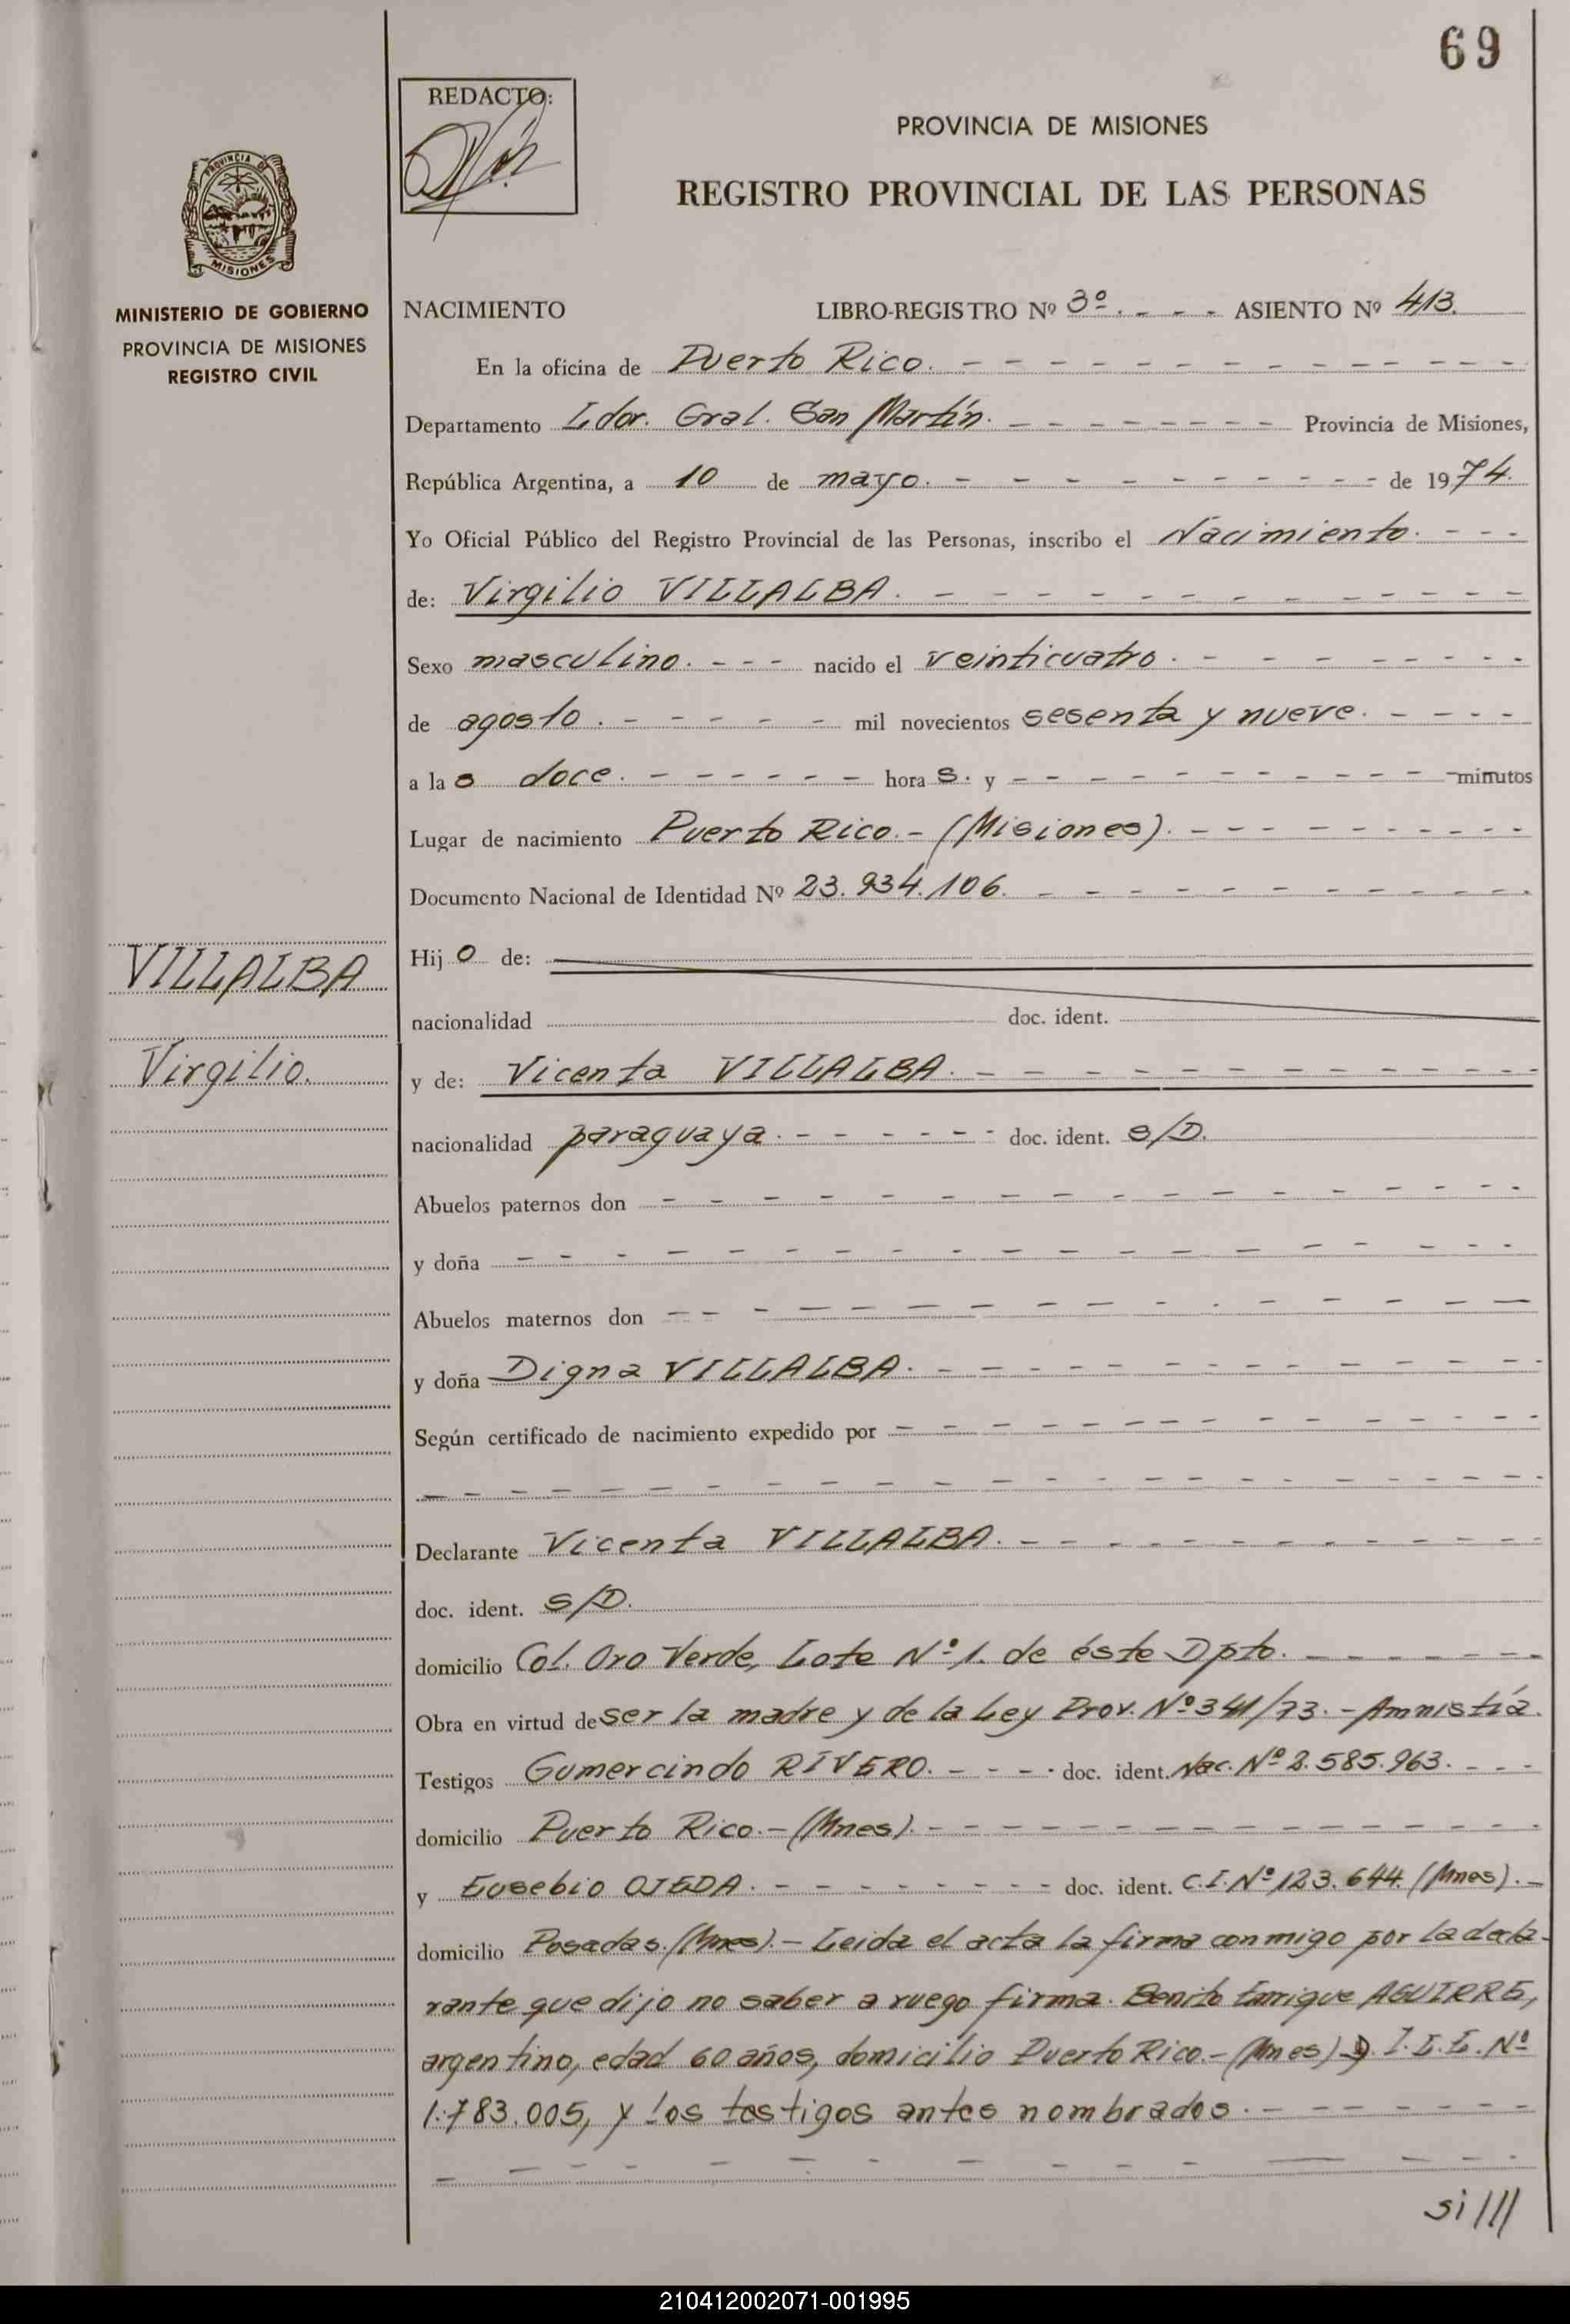 69
REDACTO:
PROVINCIA DE MISIONES
REGISTRO PROVINCIAL DE LAS PERSONAS
PROVINCIA DE
MISIONES
MINISTERIO DE GOBIERNO
PROVINCIA DE MISIONES
REGISTRO CIVIL
NACIMIENTO LIBRO-REGISTRO Nº 3º. - - - ASIENTO Nº 413.
En la oficina de Puerto Rico.
Departamento Ldor. Gral. San Martín. Provincia de Misiones,
República Argentina, a 10 de mayo. de 1974.
Yo Oficial Público del Registro Provincial de las Personas, inscribo el Nacimiento.
de: Virgilio VILLALBA.
Sexo masculino. nacido el veinticuatro.
de agosto. mil novecientos sesenta y nueve.
a las doce. horas. y minutos
Lugar de nacimiento Puerto Rico.- (Misiones).
Documento Nacional de Identidad Nº 23.934.106.
Hijo de:
nacionalidad doc. ident.
VILLALBA
Virgilio.
y de: Vicenta VILLALBA.
nacionalidad paraguaya. doc. ident. S/D.
Abuelos paternos don
y doña
Abuelos maternos don
y doña Digna VILLALBA.
Según certificado de nacimiento expedido por
Declarante Vicenta VILLALBA.
doc. ident. S/D.
domicilio Col. Oro Verde, Lote Nº 1. de éste Dpto.
Obra en virtud de ser la madre y de la Ley Prov. Nº 341/73.- Amnistía.
Testigos Gumercindo RIVERO. doc. ident. Nac. Nº 2.585.963.
domicilio Puerto Rico.- (Mnes).
y Eusebio OJEDA. doc. ident. C.I. Nº 123.644. (Mnes).
domicilio Posadas. (Mnes).- Leida el acta la firma conmigo por la decla-
rante que dijo no saber a ruego firma. Benito Enrique AGUIRRE,
argentino, edad 60 años, domicilio Puerto Rico.- (Mnes) I.L.E. Nº
1.783.005, y los testigos antes nombrados.
si///
210412002071-001995